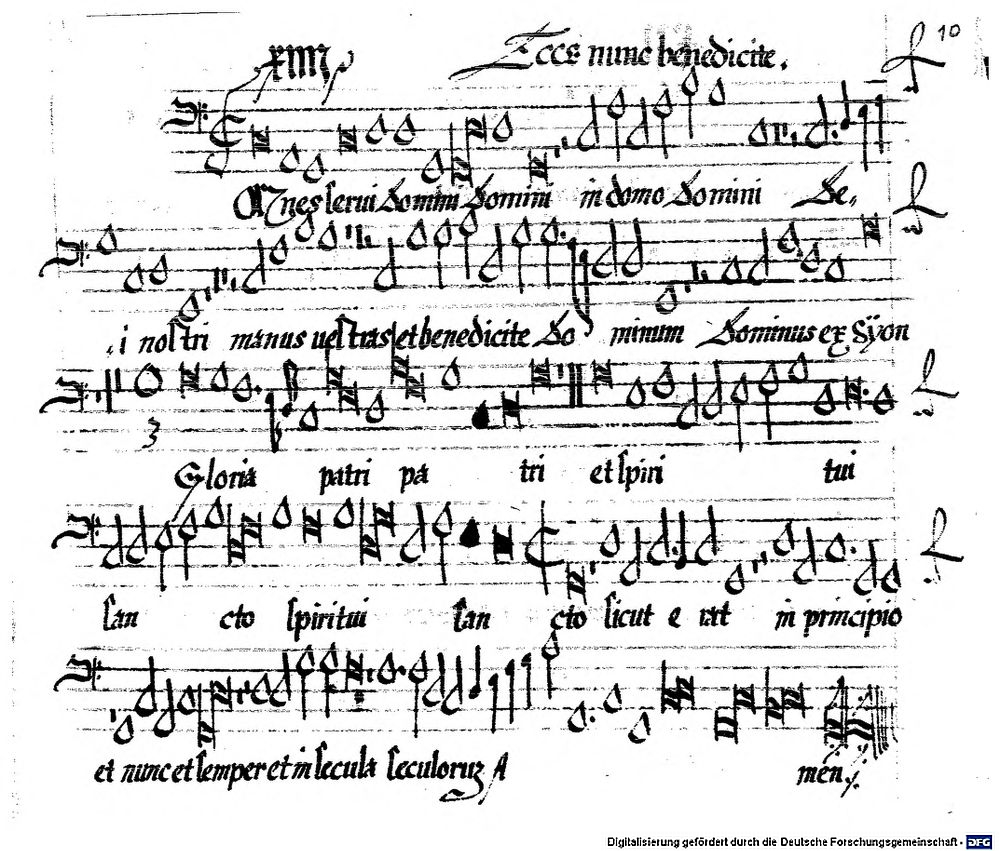 xiiij Ecce nunc benedicite. 10
Omnes serui Domini Domini in domo Domini De,
,i nostri manus uestras et benedicite Do minum Dominus ex Syon
3
Gloria patri pa tri et spiri tui
san cto spiritui san cto sicut e rat in principio
et nunc et semper et in secula seculoruz A men.
Digitalisierung gefördert durch die Deutsche Forschungsgemeinschaft - DFG